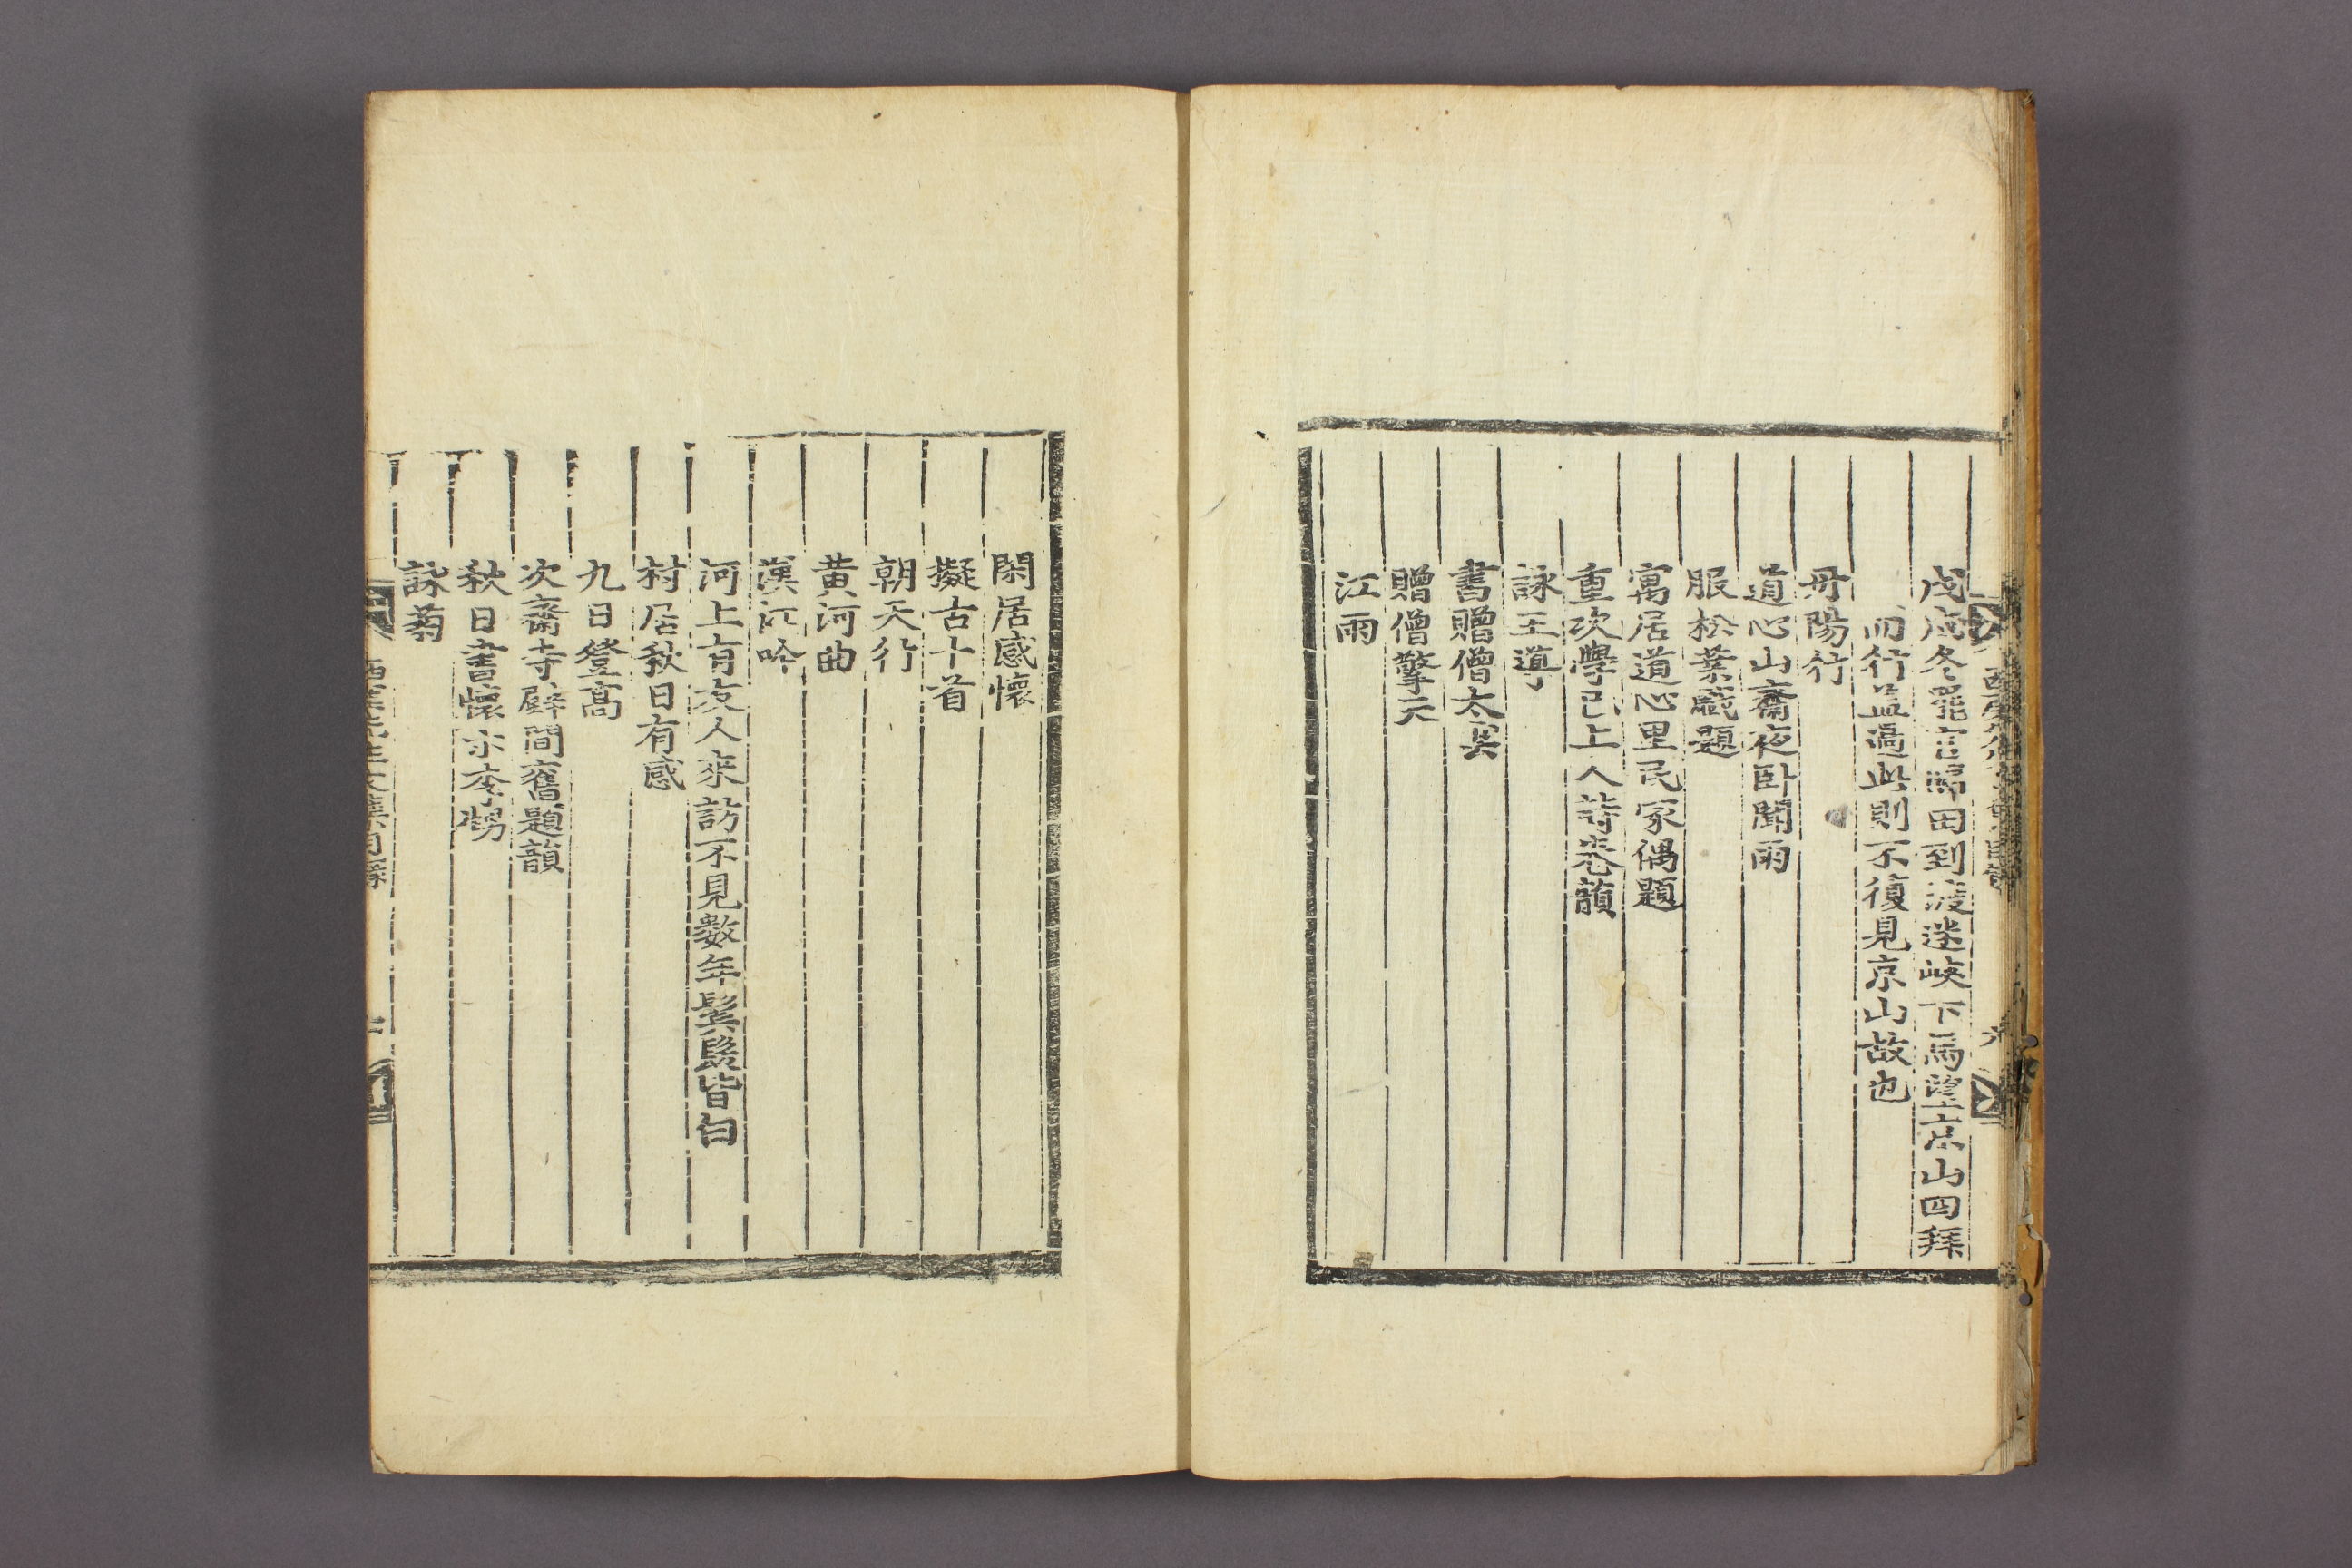 戊戌冬罷官歸田到渡迷峽下馬望京山四拜
而行盖過此則不復見京山故也
丹陽行
道心山齋夜卧聞雨
服松葉戱題
寓居道心里民家偶題
重次學己上人詩卷韻
詠王導
書贈僧太冥
贈僧擎天
江雨
六
閑居感懷
擬古十首
朝天行
黄河曲
漢江吟
河上有友人來訪不見數年鬂髮皆白
村居秋日有感
九日登高
次齋寺壁間舊題韻
秋日書懷示李甥
詠菊